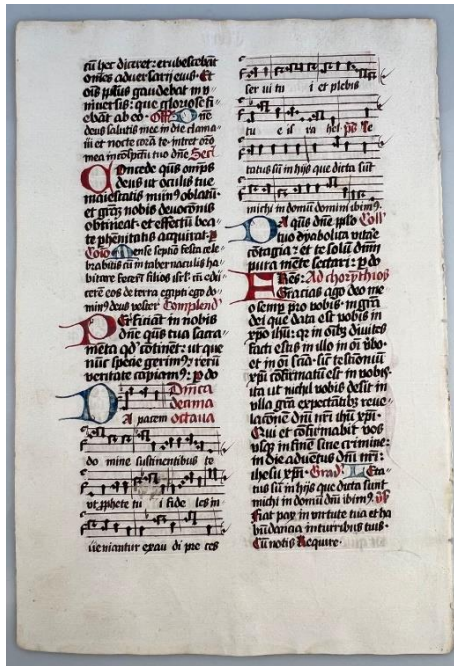 cū hec diceret: erubescebāt
om̄es adversarij eius· Et
oīs pplūs gaudebat in v
niversis: que gloriose fi
ebāt ab eo· Off Dne
deus salutis mee in die clama
vi et nocte corā te· intret oro
mea in cōspectu tuo dn̄e Secr
Concede qs om̄ps
deus ut oculis tue
maiestatis mun9 oblatū·
et grām nobis devocōnis
obtineat· et effectū bea
te phenitatis acquirat· p
Coīo Mense septīo festa cele
brabitis cū in tabernaculis ha
bitare fecerī filios isrl· cū edu
cerē eos de terra egipti ego do
min9 deus vester Complend
Perficiāt in nobis
dn̄e qs tua sacra
mēta qd cōtinēt: ut que
nūc specie gerim9 rerū
veritate capiam9: p do
Dnica
decima
octava
Da pacem
do mine sustinentibus te
ut pphete tu i fide les in
ueniantur exau di pre ces
ser ui tu i et plebis
tu e is ra hel· ps Le
tatus sū in hijs que dicta sunt
michi in domū domini ibim9
Da qs dn̄e pplo Coll
tuo dyabolica vitare
cōtagia: et te solū dn̄m
pura mēte sectari: p do
Fres: Ad chorythios
Gracias ago deo me
o semp pro vobis· in grā
dei que data est vobis in
xpo ihū: qr in oībz divites
facti estis in illo in oī vbo·
et in oī sciā· sic testīoniū
xpi cōfirmatū est in vobis·
ita ut nichil vobis desit in
vlla grā expectātibz reve
lacōnē dn̄i nr̄i ihū xpi·
Qui et cōfirmabit vos
vsqz in finē sine crimine:
in die advētus dn̄i nr̄i:
ihesu xpi· Grad Leta
tus sū in hijs que dicta sunt
michi in domū dn̄i ibim9 V
Fiat pax in virtute tua et ha
būdancia in turribus tuis·
Cū notis Require·